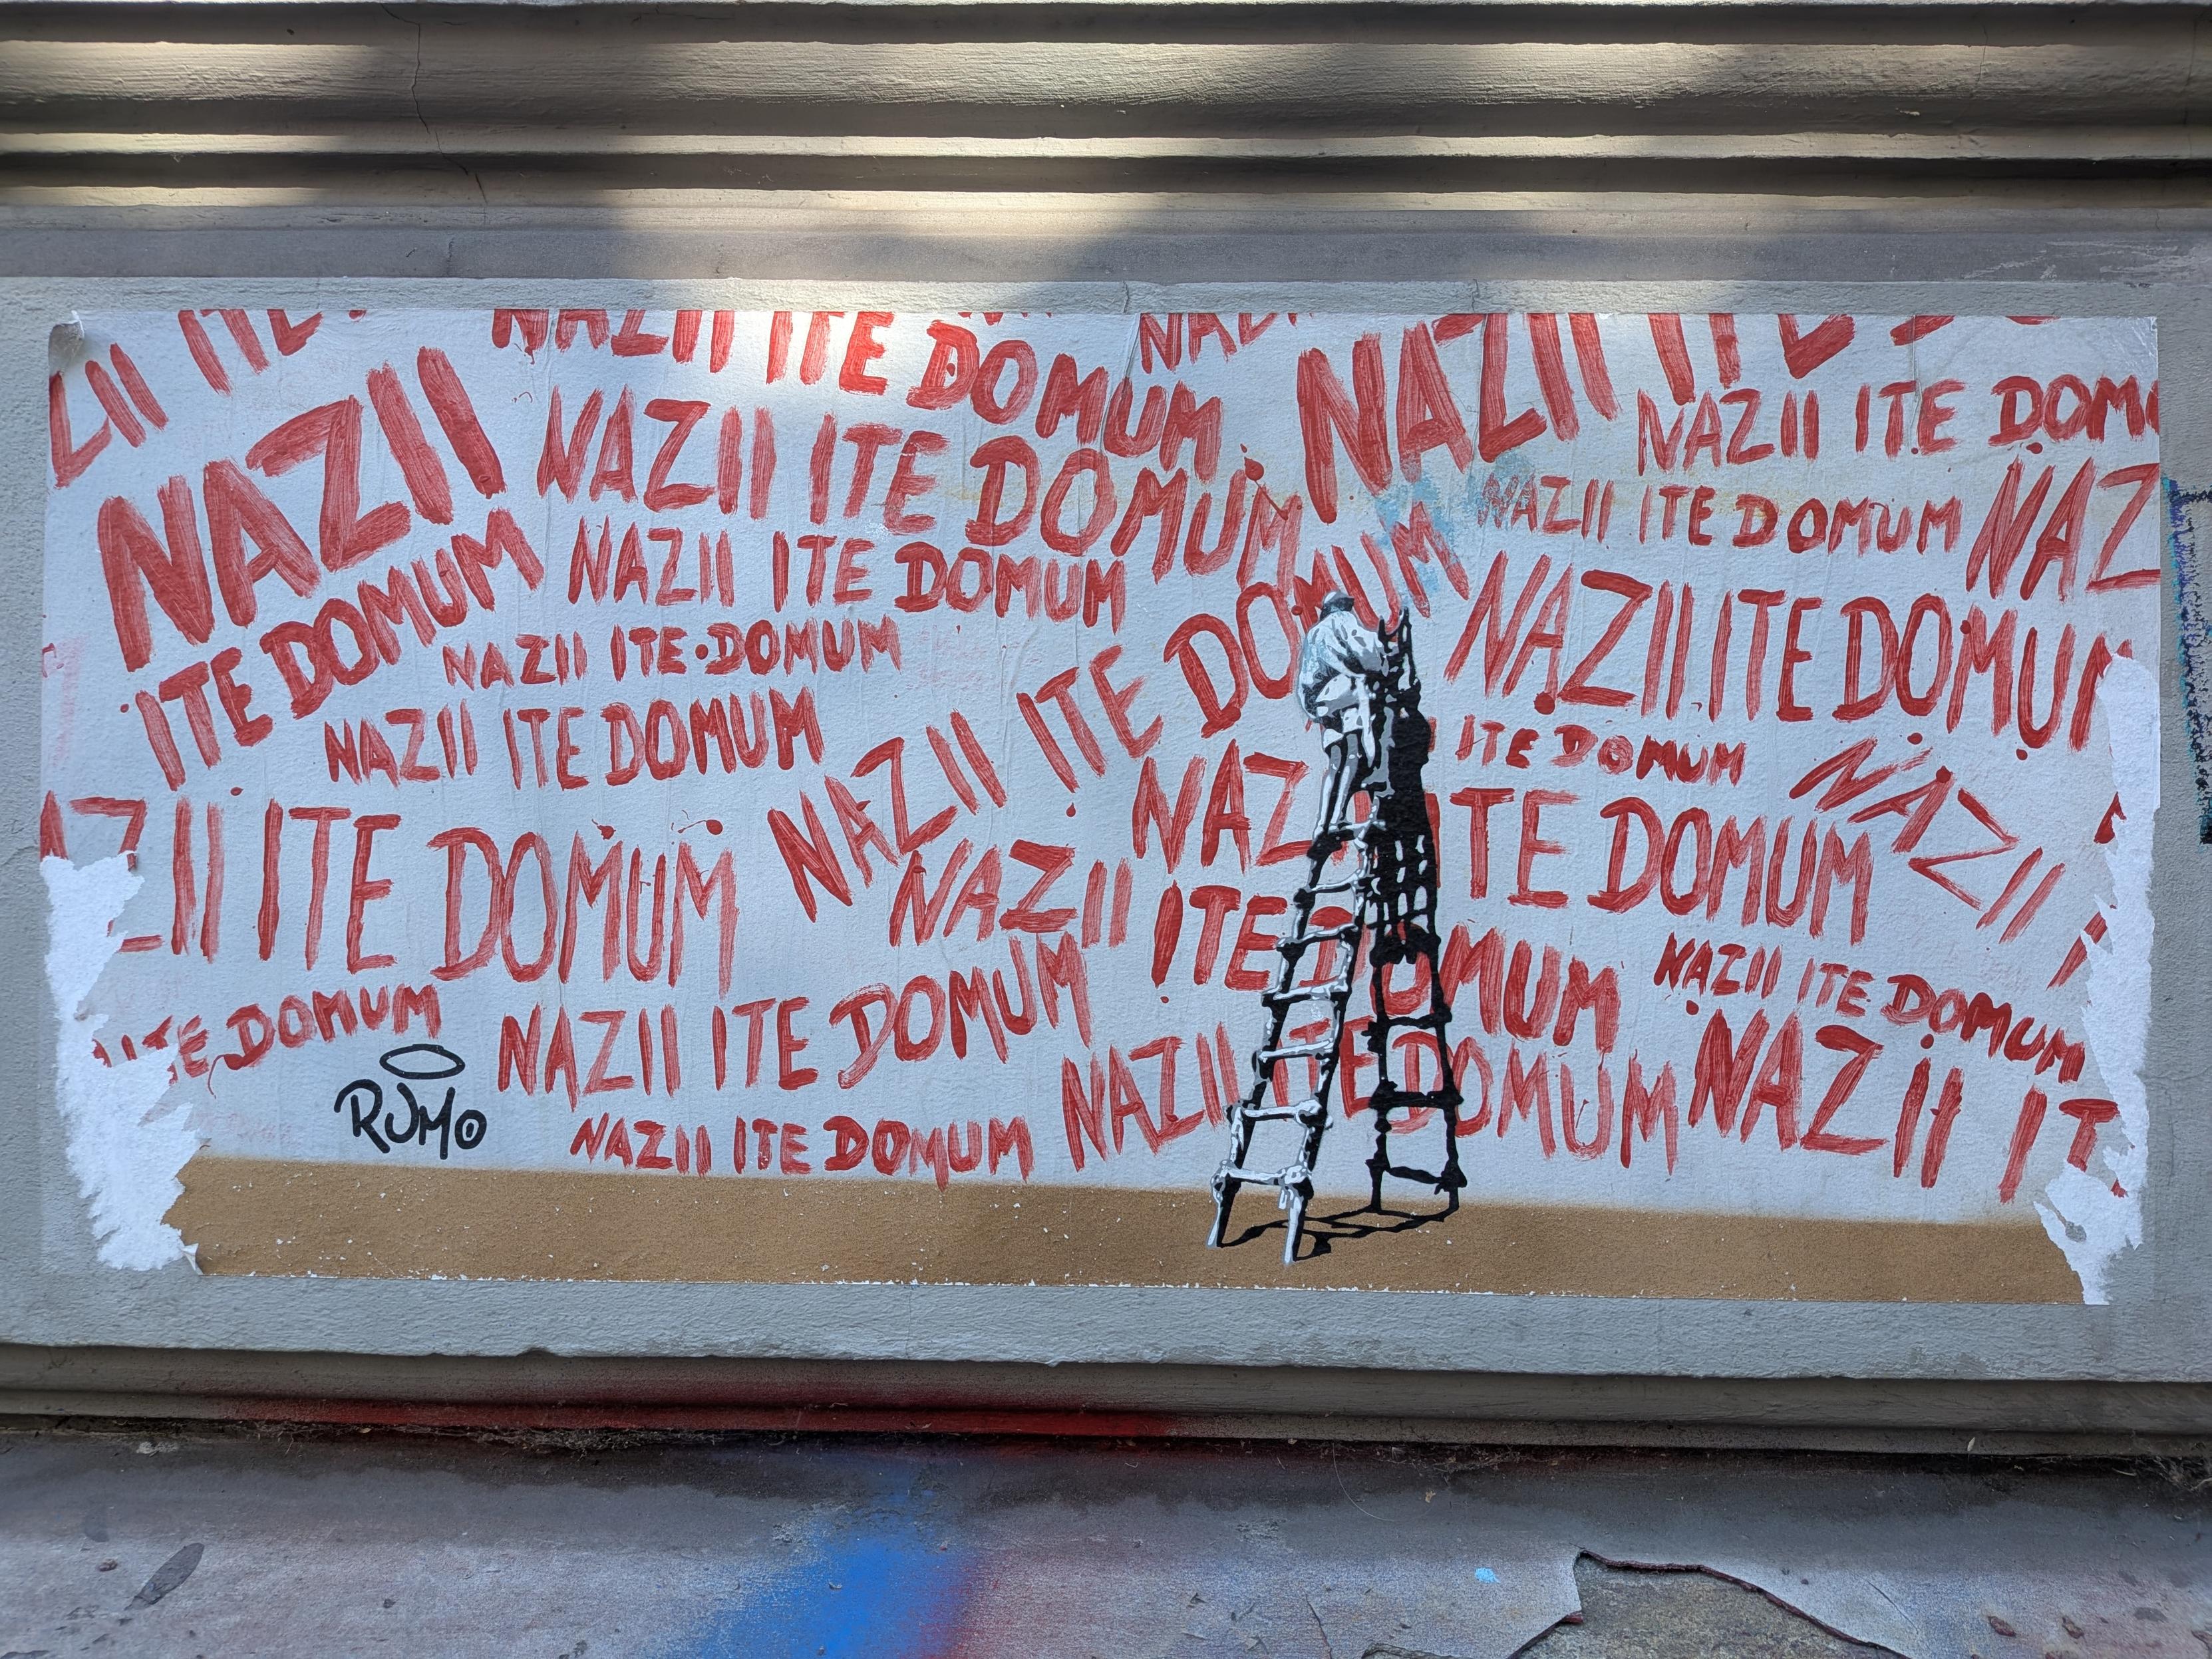 ZII ITE
NAZII ITE DOMUM
NAZII ITE DOM
NAZII ITE DOMUM
NAZII ITE DOMUM
NAZII ITE DOMUM
NAZ
NAZII ITE DOMUM
NAZII ITE DOMUM
NAZII ITE DOMUM
NAZII ITE DOMUM
NAZII ITE DOMUM
ITE DOMUM
NAZII
NAZII ITE DOMUM
NAZ ITE DOMUM
ZII ITE DOMUM
NAZII ITE DOMUM
NAZII ITE DOMUM
ITE DOMUM
NAZII ITE DOMUM
NAZII ITE DOMUM
NAZII IT
RUMO
NAZII ITE DOMUM